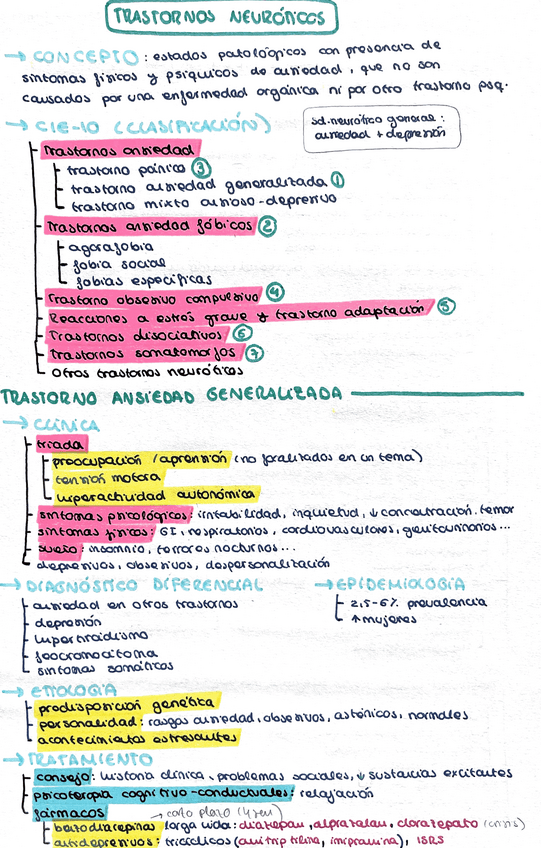 TRASTORNOS NEURÓTICOS
→ CONCEPTO: estados patológicos con presencia de
síntomas físicos y psíquicos de ansiedad, que no son
causados por una enfermedad orgánica ni por otro trastorno psq.
→ CIE-10 (CLASIFICACIÓN)
sd. neurótico general:
ansiedad + depresión
Trastornos ansiedad
trastorno pánico ③
trastorno ansiedad generalizada ①
trastorno mixto ansioso-depresivo
Trastornos ansiedad fóbicos ②
agorafobia
fobia social
fobias específicas
Trastorno obsesivo compulsivo ④
Reacciones a estrés grave y trastorno adaptación ⑤
Trastornos disociativos ⑥
Trastornos somatomorfos ⑦
Otros trastornos neuróticos
TRASTORNO ANSIEDAD GENERALIZADA
→ CLÍNICA
triada
preocupación / aprensión (no focalizados en un tema)
tensión motora
hiperactividad autonómica
síntomas psicológicos: irritabilidad, inquietud, ↓ concentración, temor
síntomas físicos: GI, respiratorios, cardiovasculares, genitourinarios...
sueño: insomnio, terrores nocturnos...
depresivos, obsesivos, despersonalización
→ DIAGNÓSTICO DIFERENCIAL
ansiedad en otros trastornos
depresión
hipertiroidismo
feocromocitoma
síntomas somáticos
→ EPIDEMIOLOGÍA
2,5-6% prevalencia
↑ mujeres
→ ETIOLOGÍA
predisposición genética
personalidad: rasgos ansiedad, obsesivos, asténicos, normales
acontecimientos estresantes
→ TRATAMIENTO
consejo: historia clínica, problemas sociales, ↓ sustancias excitantes
psicoterapia cognitivo-conductuales: relajación
fármacos
→ corto plazo
benzodiacepinas larga vida: diazepam, alprazolam, clorazepato
antidepresivos: tricíclicos (amitriptilina, imipramina), ISRS